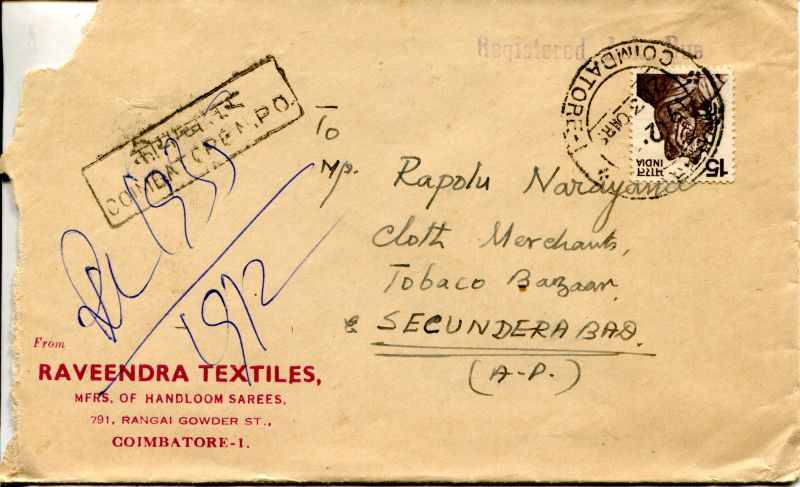 Registered
कोयम्बतूर
COIMBATORE N.P.O.
COIMBATORE-1
भारत
INDIA
15
To
M/s. Rapolu Narayana
Cloth Merchants,
Tobaco Bazaar,
SECUNDERABAD.
(A-P.)
From
RAVEENDRA TEXTILES,
MFRS. OF HANDLOOM SAREES,
791, RANGAI GOWDER ST.,
COIMBATORE-1.